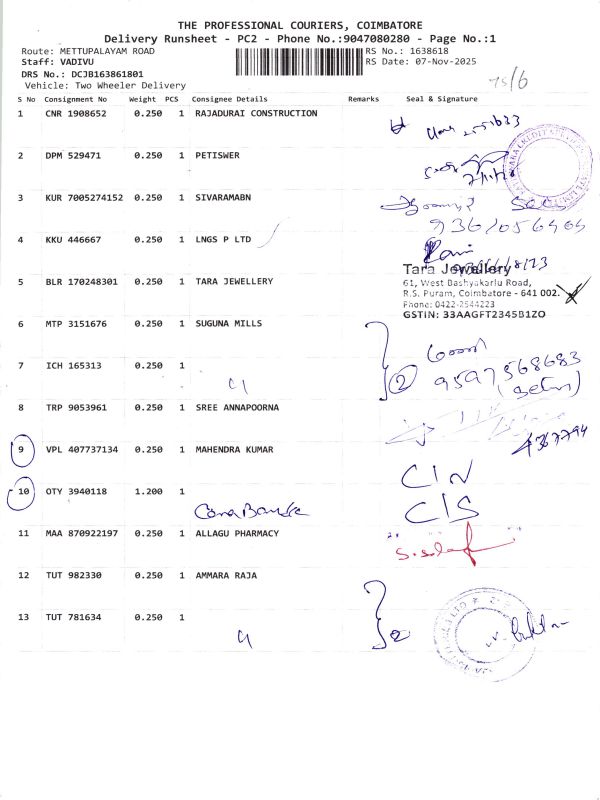 THE PROFESSIONAL COURIERS, COIMBATORE
Delivery Runsheet - PC2 - Phone No.:9047080280 - Page No.:1
Route: METTUPALAYAM ROAD RS No.: 1638618
Staff: VADIVU RS Date: 07-Nov-2025
DRS No.: DCJB163861801
Vehicle: Two Wheeler Delivery
75/6
S No Consignment No Weight PCS Consignee Details Remarks Seal & Signature
1 CNR 1908652 0.250 1 RAJADURAI CONSTRUCTION
2 DPM 529471 0.250 1 PETISWER
3 KUR 7005274152 0.250 1 SIVARAMABN
4 KKU 446667 0.250 1 LNGS P LTD
Tara Jewellery
61, West Bashyakarlu Road,
R.S. Puram, Coimbatore - 641 002.
Phone: 0422-2544223
GSTIN: 33AAGFT2345B1ZO
5 BLR 170248301 0.250 1 TARA JEWELLERY
6 MTP 3151676 0.250 1 SUGUNA MILLS
7 ICH 165313 0.250 1
2 9597568683
8 TRP 9053961 0.250 1 SREE ANNAPOORNA
9 VPL 407737134 0.250 1 MAHENDRA KUMAR
C/N
10 OTY 3940118 1.200 1
C/S
11 MAA 870922197 0.250 1 ALLAGU PHARMACY
12 TUT 982330 0.250 1 AMMARA RAJA
13 TUT 781634 0.250 1
2